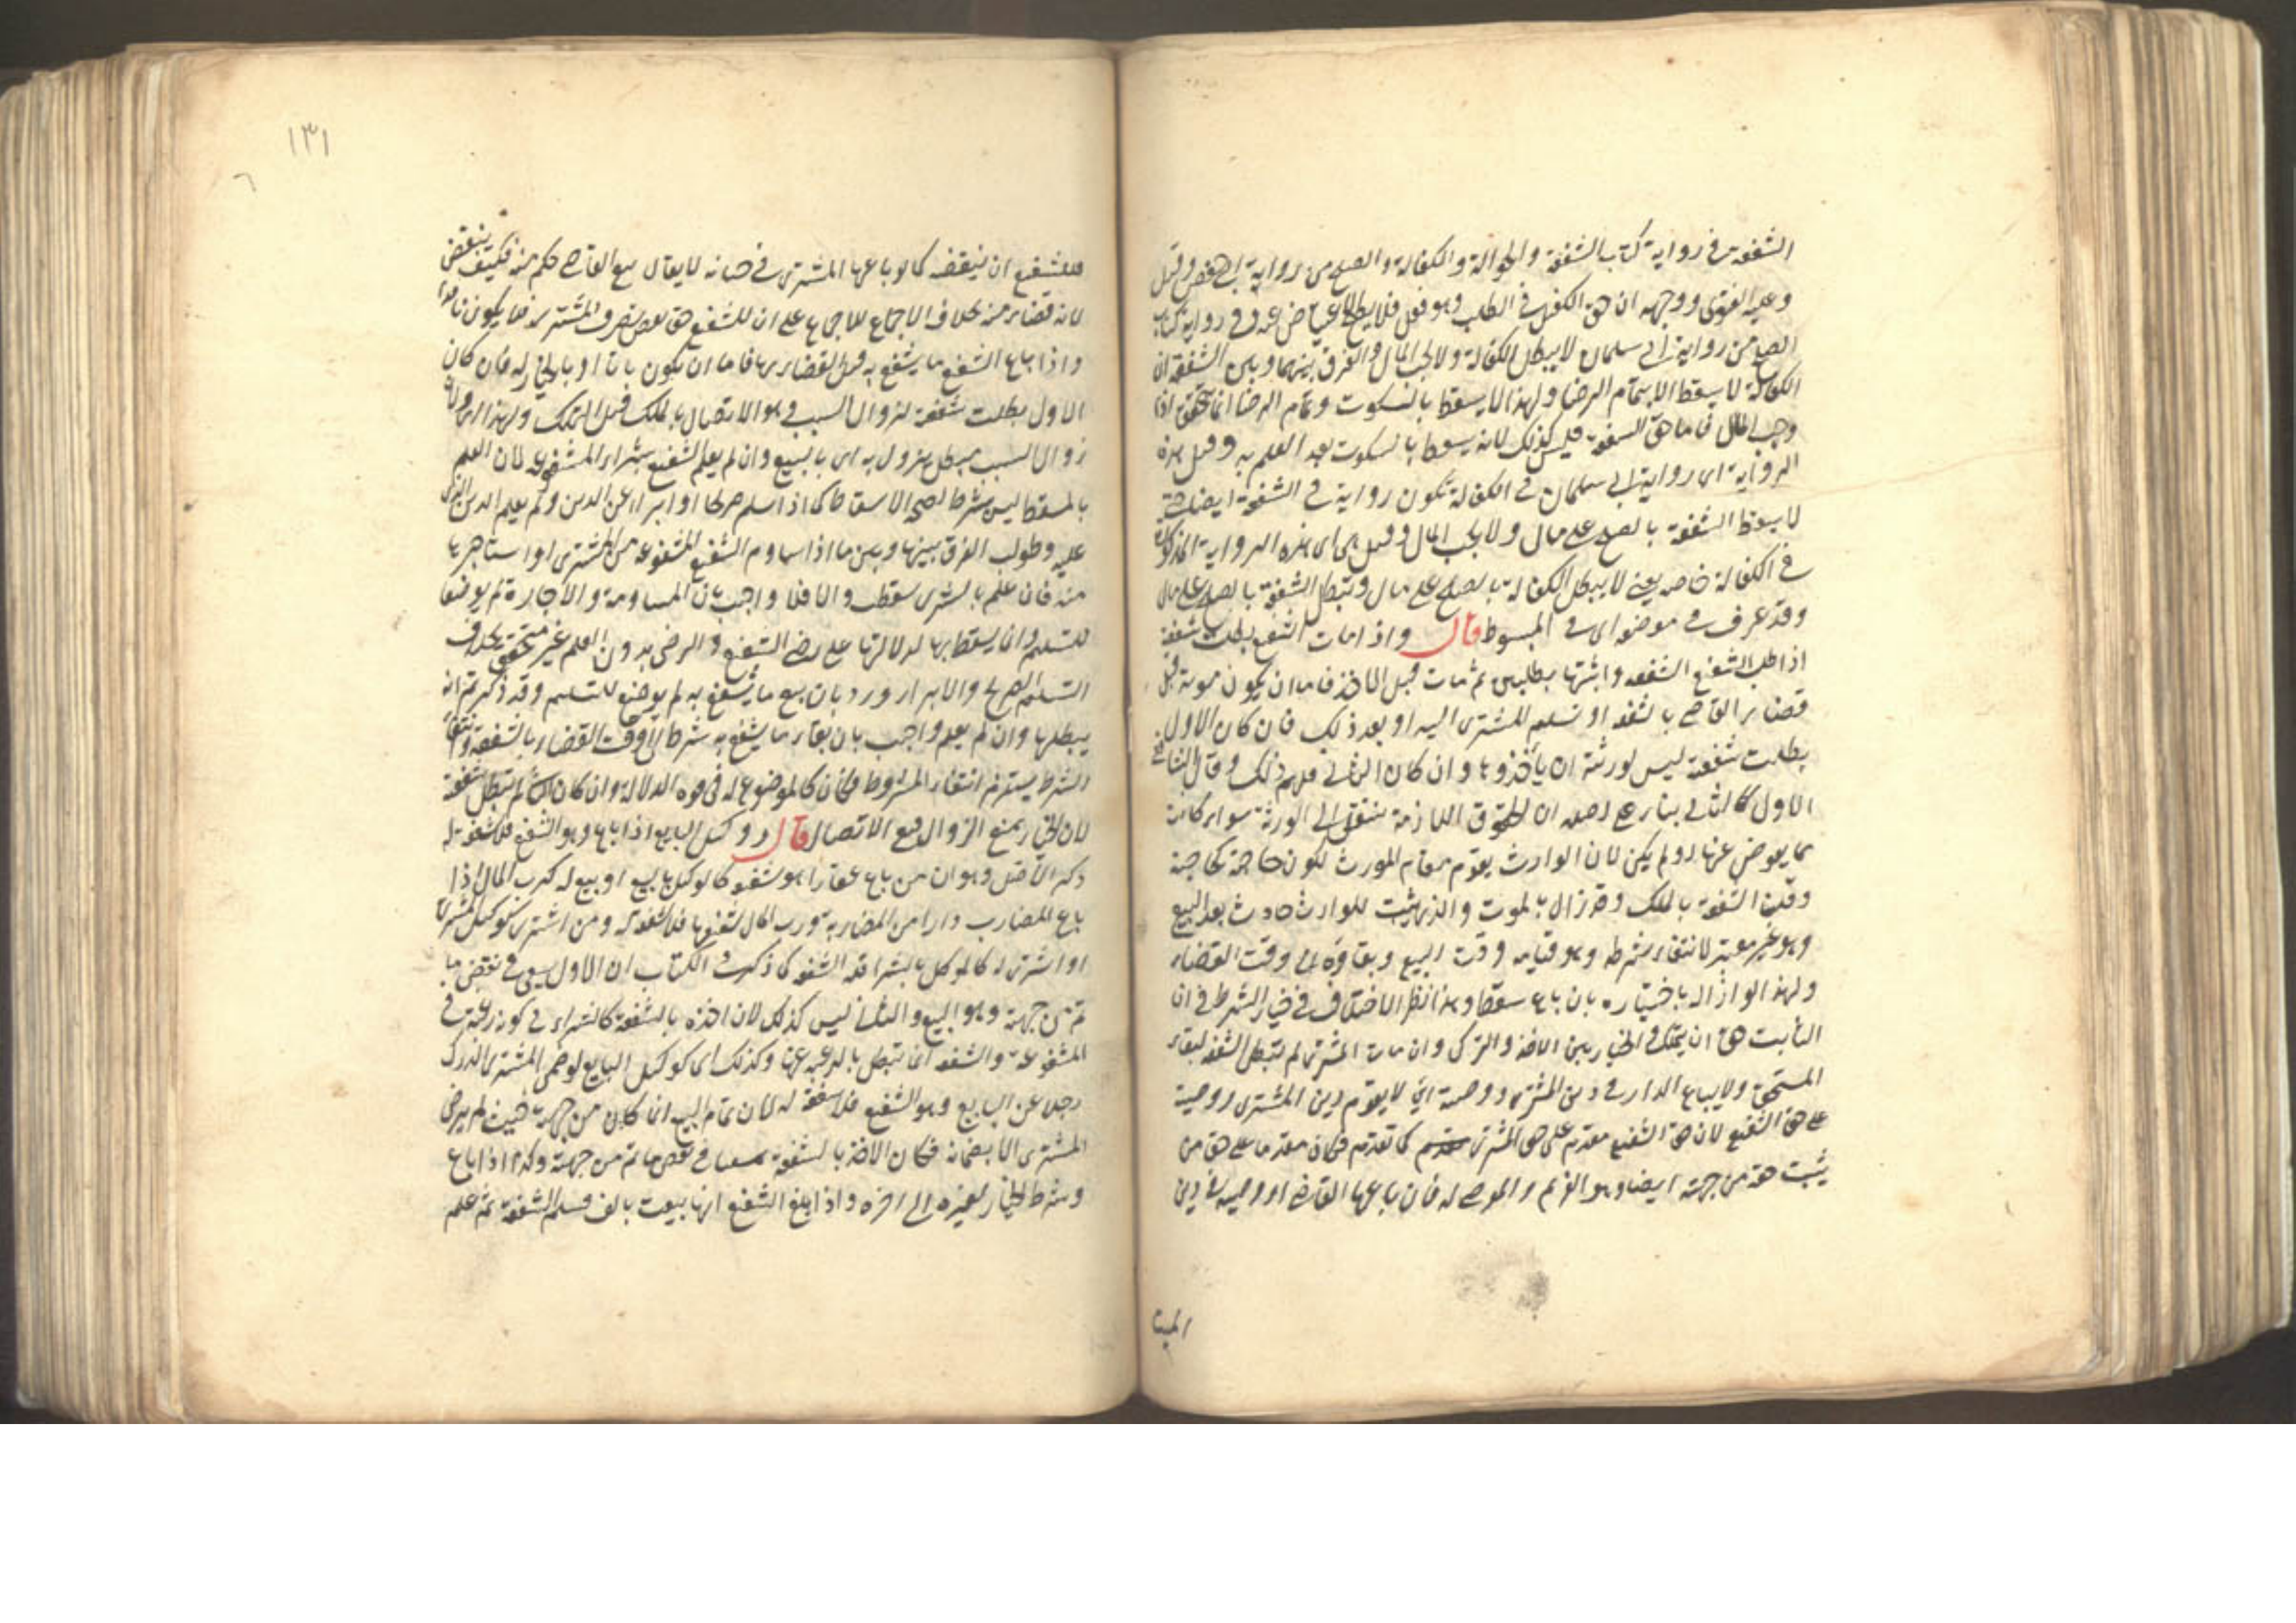 الشفعة في رواية كتاب الشفعة والحوالة والكفالة والصلح من رواية ابي حفص وقيل
وعليه الفتوى ووجهه ان حق الكفيل في الطلب وهو فعل فلا يصح الاعتياض عنه وفي رواية كتاب
الصلح من رواية ابي سليمان لا يبطل الكفالة ولا يجب المال والفرق بينهما وبين الشفعة ان
الكفالة لا يسقط الا بتمام الرضا ولهذا لا يسقط بالسكوت وتمام الرضا انما يتحقق اذا
وجب المال فاما حق الشفعة فليس كذلك لانه يسقط بالسكوت بعد العلم به وقيل هذه
الرواية اى رواية ابي سليمان في الكفالة تكون رواية في الشفعة ايضا حتى
لا يسقط الشفعة بالصلح على مال ولا يجب المال وقيل هى اى هذه الرواية المذكورة
في الكفالة خاصة يعني لا يبطل الكفالة بالصلح على مال وتبطل الشفعة بالصلح على مال
وقد عرف في موضعه اى في المبسوط قال واذا مات الشفيع بطلت شفعته
اذا طلب الشفيع الشفعة واثبتها بطلبين ثم مات قبل الاخذ فاما ان يكون موته قبل
قضاء القاضي بالشفعة او تسليم المشترى اليه او بعد ذلك فان كان الاول
بطلت شفعته ليس لورثته ان يأخذوها وان كان الثاني فلهم ذلك وقال الشافعي
الاول كالثاني بناء على اصله ان الحقوق اللازمة ينتقل الى الورثة سواء كانت
مما يعوض عنها او لم يكن لان الوارث يقوم مقام المورث لكون حاجته كحاجته
وقلنا الشفعة بالملك وقد زال بالموت والذى يثبت للوارث حادث بعد البيع
وهو غير معتبر لانتفاء شرطه وهو قيامه وقت البيع وبقاؤه الى وقت القضاء
ولهذا لو ازاله باختياره بان باع سقطا وهذا نظير الاختلاف في خيار الشرط في ان
الثابت حق ان يتملك والخيار بين الاخذ والترك وان مات المشترى لم تبطل الشفعة لبقاء
المستحق ولا يباع الدار في دين المشترى ووصيته اي لا يقدم دين المشترى ووصيته
على حق الشفيع لان حق الشفيع مقدم على حق المشترى كما تقدم فكان مقدما على حق من
يثبت حقه من جهته ايضا وهو الغريم والموصى له فان باعها القاضي او وصيه في دين
الميت
١٣١
فللشفيع ان ينقضه كما لو باعها المشترى في حياته لا يقال بيع القاضي حكم منه فكيف ينقض
لانه قضاء منه بخلاف الاجماع للاجماع على ان للشفيع حق نقض تصرف المشترى فلا يكون نافذا
واذا باع الشفيع ما يشفع به قبل القضاء بها فاما ان يكون باتا او بالخيار له فان كان
الاول بطلت شفعته لزوال السبب وهو الاتصال بالملك قبل التملك ولهذا اى ولان
زوال السبب مبطل يزول به اى بالبيع وان لم يعلم الشفيع بشراء المشفوعة لان العلم
بالمسقط ليس بشرط لصحة الاسقاط كما اذا سلم صريحا او ابراء عن الدين ولم يعلم الدين الذى
عليه وطولب الفرق بينها وبين ما اذا ساوم الشفيع المشفوعة من المشترى او استأجرها
منه فان علم بالشرى سقطت والا فلا واجيب بان المساومة والاجارة لم يوضعا
للتسليم وان يسقط بها لدلالتها على رضى الشفيع والرضى بدون العلم غير متحقق بخلاف
التسليم الصريح والابراء ورد بان بيع ما يشفع به لم يوضع للتسليم وقد ذكرتم انه
يبطلها وان لم يعلم واجيب بان بقاء ما يشفع به شرط الى وقت القضاء بالشفعة وانتفاء
الشرط يستلزم انتفاء المشروط فكان كالموضوع له في قوة الدلالة وان كان الثاني لم تبطل شفعته
لان الخيار يمنع الزوال فبقي الاتصال قال ووكيل البايع اذا باع وهو الشفيع فلا شفعة له
ذكر الاصل وهو ان من باع عقارا هو شفيعه كالوكيل بالبيع او بيع له كرب المال اذا
باع المضارب دارا من المضاربة ورب المال شفيعها فلا شفعة له ومن اشترى كوكيل المشترى
او اشترى له كالموكل بالشراء فله الشفعة كما ذكر في الكتاب ان الاول يسعى في نقض ما
تم من جهته وهو البيع والثاني ليس كذلك لان اخذه بالشفعة كالشراء في كونه رغبة في
المشفوعة والشفعة انما تبطل بالرغبة عنها وكذلك اى كوكيل البايع لو ضمن المشترى الدرك
رجل عن البايع وهو الشفيع فلا شفعة له لان تمام البيع انما كان من جهته حيث لم يرض
المشترى الا بضمانه فكان الاخذ بالشفعة سعيا في نقض ما تم من جهته وكذا اذا باع
وشرط الخيار لغيره الى اخره واذا بلغ الشفيع انها بيعت بالف فسلم الشفعة ثم علم